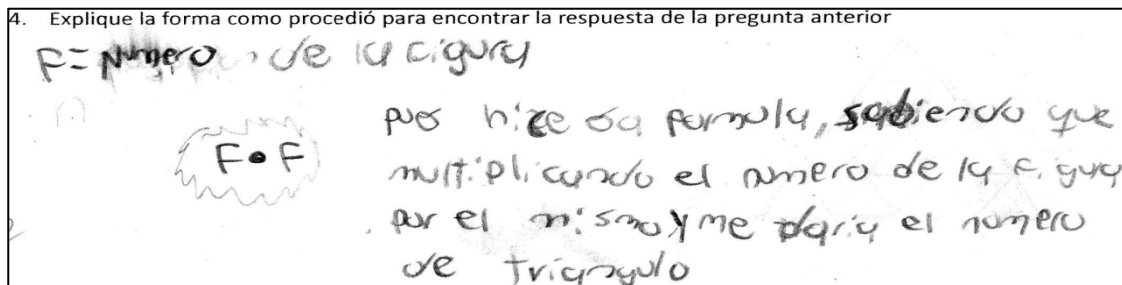 4. Explique la forma como procedió para encontrar la respuesta de la pregunta anterior
F= Numero de la figura
F•F
pues hize esa formula, sabiendo que
multiplicando el numero de la figura
por el mismo y me daria el numero
de triangulo